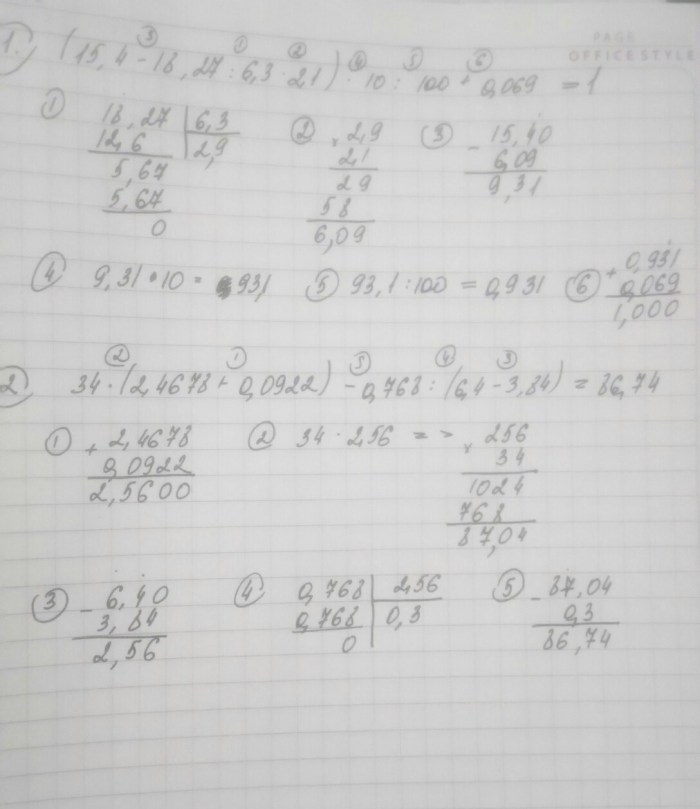 PAGE
OFFICE STYLE
③ ① ② ④ ⑤ ⑥
1. (15,4 - 18,27 : 6,3 · 2,1) · 10 : 100 + 0,069 = 1
① 18,27 | 6,3
12,6 | 2,9
5,67
5,67
0
② × 2,9
2,1
29
58
6,09
③ - 15,40
6,09
9,31
④ 9,31 · 10 = 93,1
⑤ 93,1 : 100 = 0,931
⑥ + 0,931
0,069
1,000
② ① ⑤ ④ ③
2. 34 · (2,4678 + 0,0922) - 0,768 : (6,4 - 3,84) = 86,74
① + 2,4678
0,0922
2,5600
② 34 · 2,56 = => × 256
34
1024
768
87,04
③ - 6,40
3,84
2,56
④ 0,768 | 2,56
0,768 | 0,3
0
⑤ - 87,04
0,3
86,74